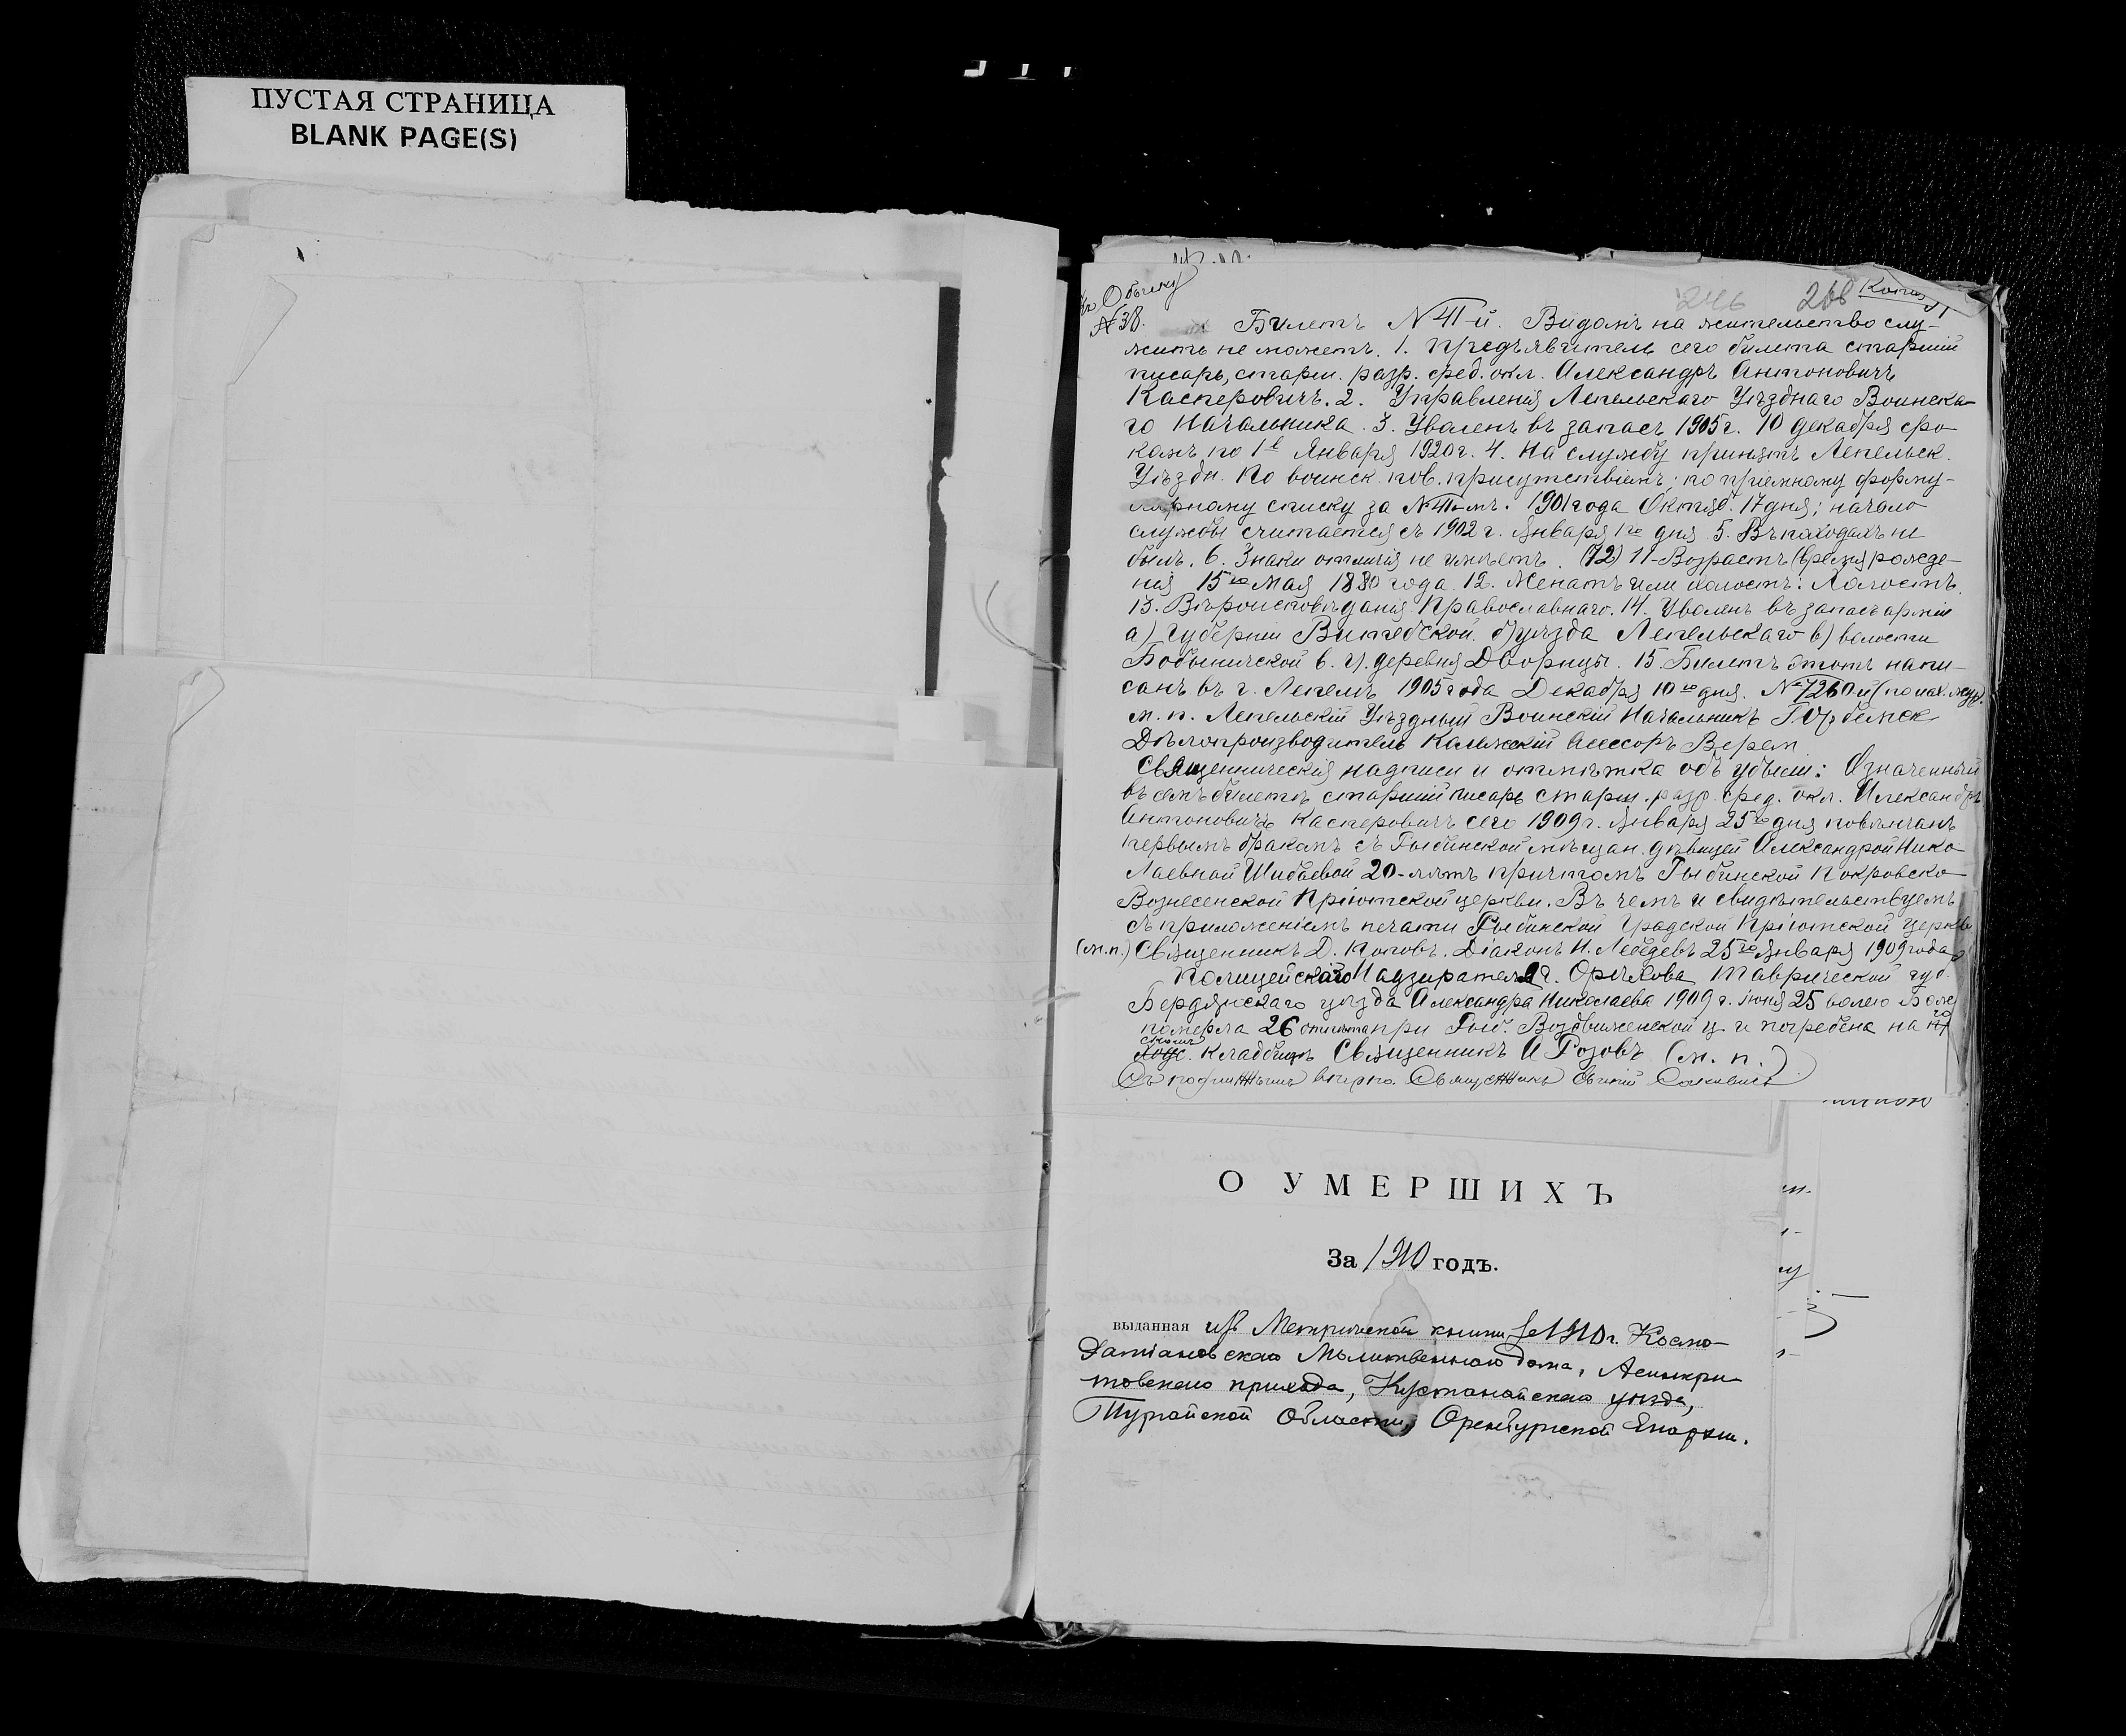 ПУСТАЯ СТРАНИЦА
BLANK PAGE(S)
246 268 Копия
Къ Обыску
№ 38.
Билетъ № 41-й. Видомъ на жительство слу-
жить не можетъ. 1. Предъявитель сего билета старшій
писарь, старш. разр. сред. окл. Александръ Антоновичъ
Касперовичъ. 2. Управленія Лепельскаго Уѣзднаго Воинска-
го Начальника. 3. Уволенъ въ запасъ 1905 г. 10 декабря сро-
комъ по 1е Января 1920 г. 4. На службу принятъ Лепельск.
Уѣздн. по воинск. пов. присутствіемъ; по пріемному форму-
лярному списку за № 41-мъ. 1901 года Октяб. 17 дня; начало
службы считается съ 1902 г. Января 1го дня. 5. Въ походахъ не
былъ. 6. Знаки отличія не имѣетъ. (72) 11-Возрастъ (время рожде-
нія 15го Мая 1880 года. 12. Женатъ или холостъ: Холостъ.
13. Вѣроисповѣданія Православнаго. 14. Уволенъ въ запасъ арміи
а) губерніи Витебской. б) уѣзда Лепельскаго в) волости
Бобынической в. г). деревня Дворицы. 15. Билетъ этотъ напи-
санъ въ г. Лепелѣ 1905 года Декабря 10го дня. № 7260-й
м. п. Лепельскій Уѣздный Воинскій Начальникъ
Дѣлопроизводитель Коллежскій Асессоръ
Священническія надписи и отмѣтка объ убыли: Означенный
въ семъ билетѣ старшій писарь старш. разр. сред. окл. Александръ
Антоновичъ Касперовичъ сего 1909 г. Января 25го дня повѣнчанъ
первымъ бракомъ съ Рыбинской мѣщан. дѣвицей Александрой Нико-
лаевной Шибаевой 20-лѣтъ причтомъ Рыбинской Покровско-
Вознесенской Пріютской церкви. Въ чемъ и свидѣтельствуемъ
съ приложеніемъ печати Рыбинской Градской Пріютской церкви
(м.п.) Священникъ Д. Поповъ. Діаконъ Н. Лебедевъ 25го Января 1909 года
Полицейскаго Надзирателя г. Орѣхова Таврической губ.
Бердянскаго уѣзда Александра Николаева 1909 г. Іюня 25 волею Бож
померла 26 отпѣта при Рыб. Воздвиженской ц. и погребена на
кладбищѣ Священникъ А Розовъ (м. п.)
Съ подлиннымъ вѣрно. Священникъ
О УМЕРШИХЪ
За 1910 годъ.
выданная изъ Метрической книги за 1910 г. Космо-
Даміановскаго Молитвеннаго дома, Асенкри-
товскаго прихода, Кустанайскаго уѣзда,
Тургайской Области, Оренбургской Епархіи.